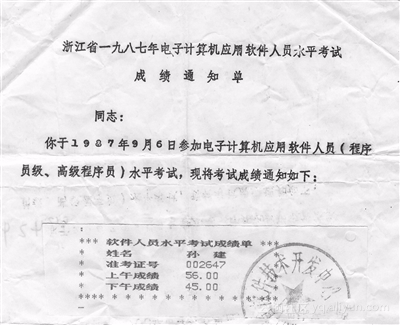 浙江省一九八七年电子计算机应用软件人员水平考试
成绩通知单
同志：
你于1987年9月6日参加电子计算机应用软件人员（程序
员级、高级程序员）水平考试，现将考试成绩通知如下：
*** 软件人员水平考试成绩单 ***
* 姓名 孙 建 *
* 准考证号 002647 *
* 上午成绩 56.00 *
* 下午成绩 45.00 *
技术开发中心